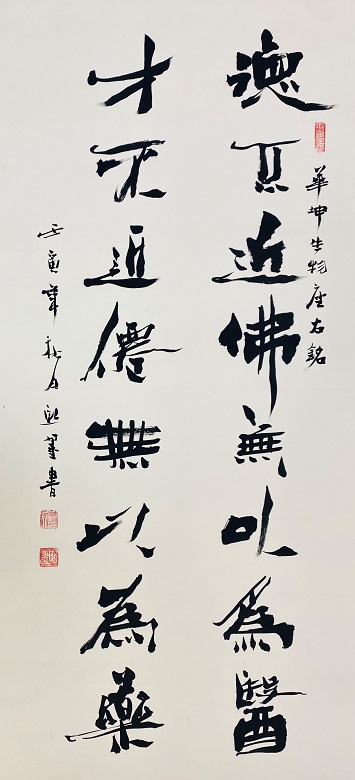 華坤生物座右銘
德不近佛無以為醫
才不近僊無以為藥
壬寅年秋月書